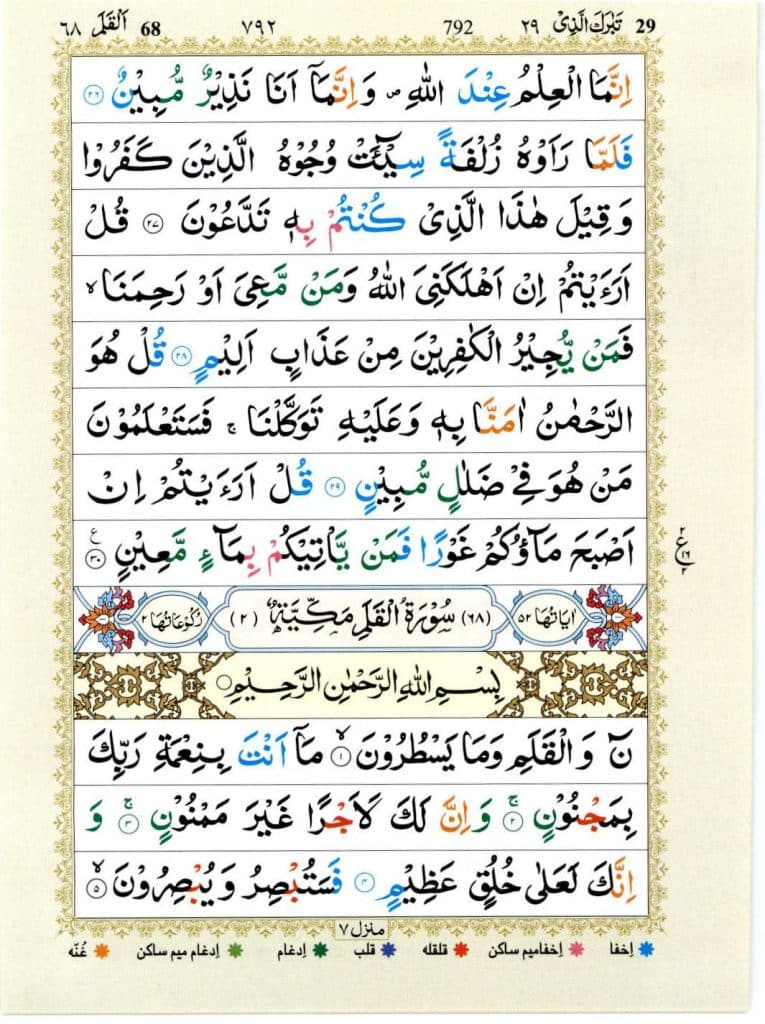 29 تَبٰرَكَ الَّذِىْ ٢٩ 792 ٧٩٢ 68 اَلْقَلَمِ ٦٨
اِنَّمَا الْعِلْمُ عِنْدَ اللّٰهِ ۪ وَاِنَّمَاۤ اَنَا نَذِيْرٌ مُّبِيْنٌ ٢٦
فَلَمَّا رَاَوْهُ زُلْفَةً سِيْٓـَٔتْ وُجُوْهُ الَّذِيْنَ كَفَرُوْا
وَ قِيْلَ هٰذَا الَّذِىْ كُنْتُمْ بِهٖ تَدَّعُوْنَ ٢٧ قُلْ
اَرَءَيْتُمْ اِنْ اَهْلَكَنِىَ اللّٰهُ وَمَنْ مَّعِىَ اَوْ رَحِمَنَا ۙ
فَمَنْ يُّجِيْرُ الْكٰفِرِيْنَ مِنْ عَذَابٍ اَلِيْمٍ ٢٨ قُلْ هُوَ
الرَّحْمٰنُ اٰمَنَّا بِهٖ وَعَلَيْهِ تَوَكَّلْنَا ۚ فَسَتَعْلَمُوْنَ
مَنْ هُوَ فِىْ ضَلٰلٍ مُّبِيْنٍ ٢٩ قُلْ اَرَءَيْتُمْ اِنْ
اَصْبَحَ مَآؤُكُمْ غَوْرًا فَمَنْ يَّاْتِيْكُمْ بِمَآءٍ مَّعِيْنٍ ٣٠ ع
٢ ع ١٦ ٢
اٰيَاتُهَا ٥٢ (٦٨) سُوْرَةُ الْقَلَمِ مَكِّيَّةٌ (٢) رُكُوْعَاتُهَا ٢
بِسْمِ اللّٰهِ الرَّحْمٰنِ الرَّحِيْمِ
نٓ وَ الْقَلَمِ وَمَا يَسْطُرُوْنَ ۙ ١ مَاۤ اَنْتَ بِنِعْمَةِ رَبِّكَ
بِمَجْنُوْنٍ ۚ ٢ وَاِنَّ لَكَ لَاَجْرًا غَيْرَ مَمْنُوْنٍ ۚ ٣ وَ
اِنَّكَ لَعَلٰى خُلُقٍ عَظِيْمٍ ٤ فَسَتُبْصِرُ وَ يُبْصِرُوْنَ ۙ ٥
منزل ٧
إخفا إخفامیم ساکن قلقله قلب إدغام إدغام میم ساکن غُنّه